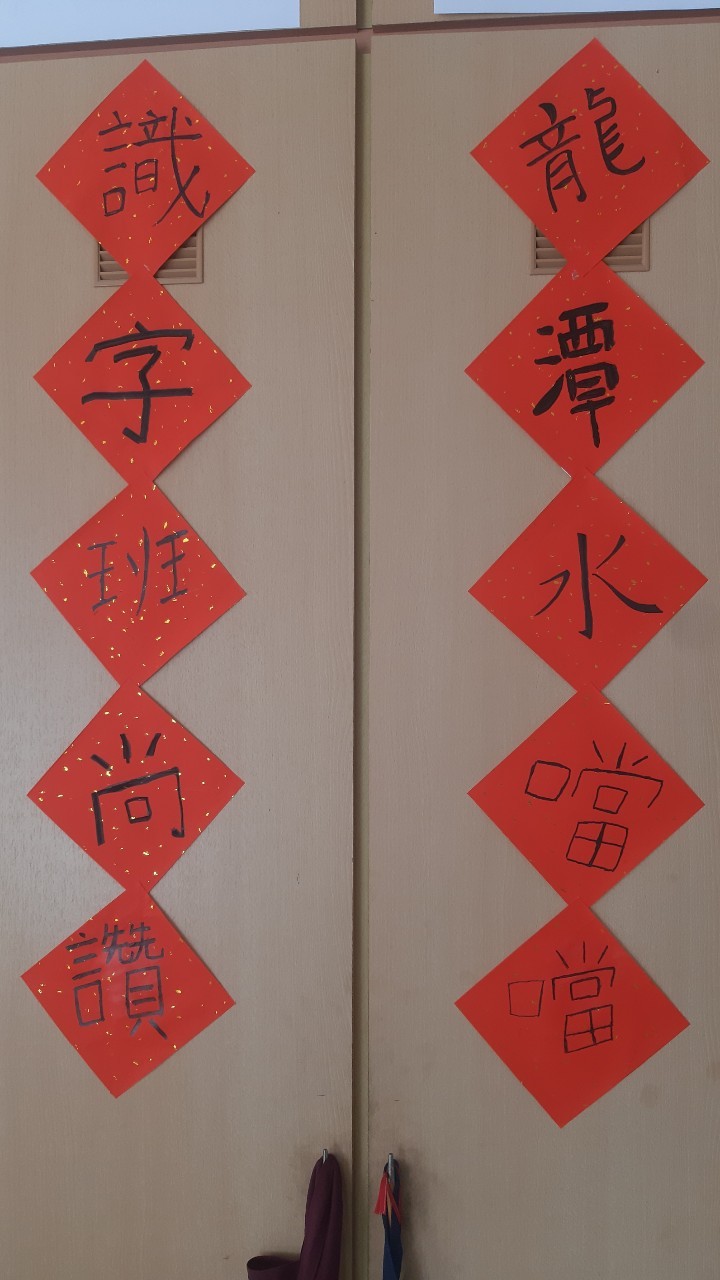 龍潭水噹噹
識字班尚讚